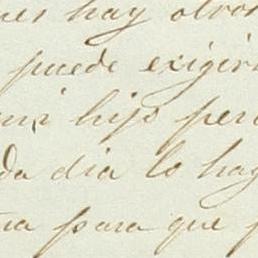 ues hay otros
puede exigir
mi hijo per
da dia lo hag
na para que